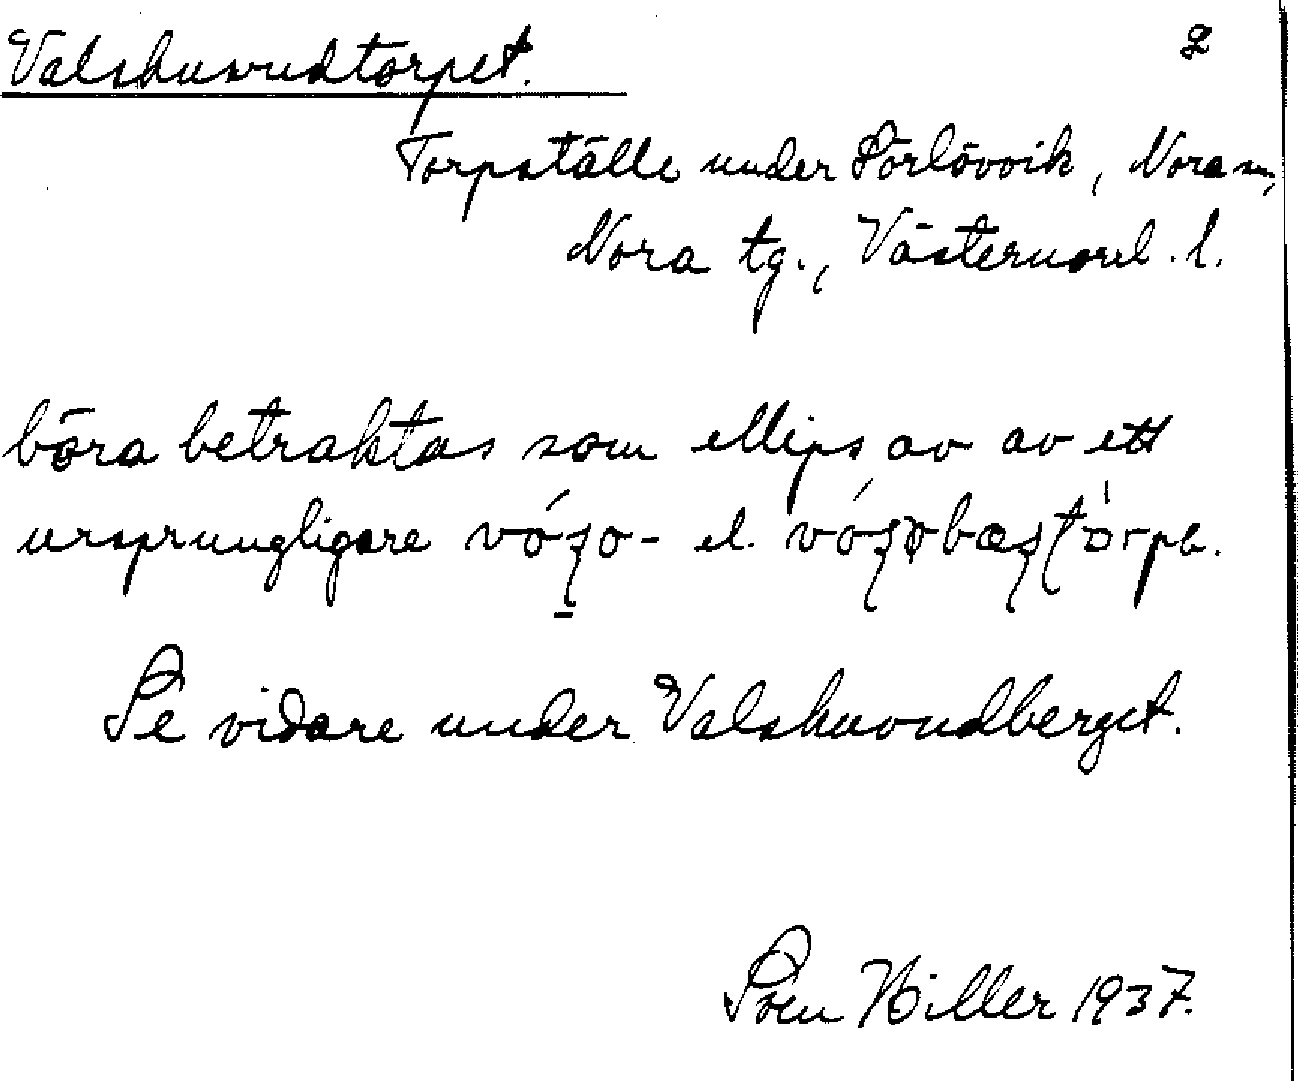 Valshuvudtorpet. 2
Torpställe under Sörlövvik, Nora sn,
Nora tg., Västernorrl. l.
böra betraktas som ellips av av ett
ursprungligare el.
Se vidare under Valshuvudberget.
Sven Hiller 1937.